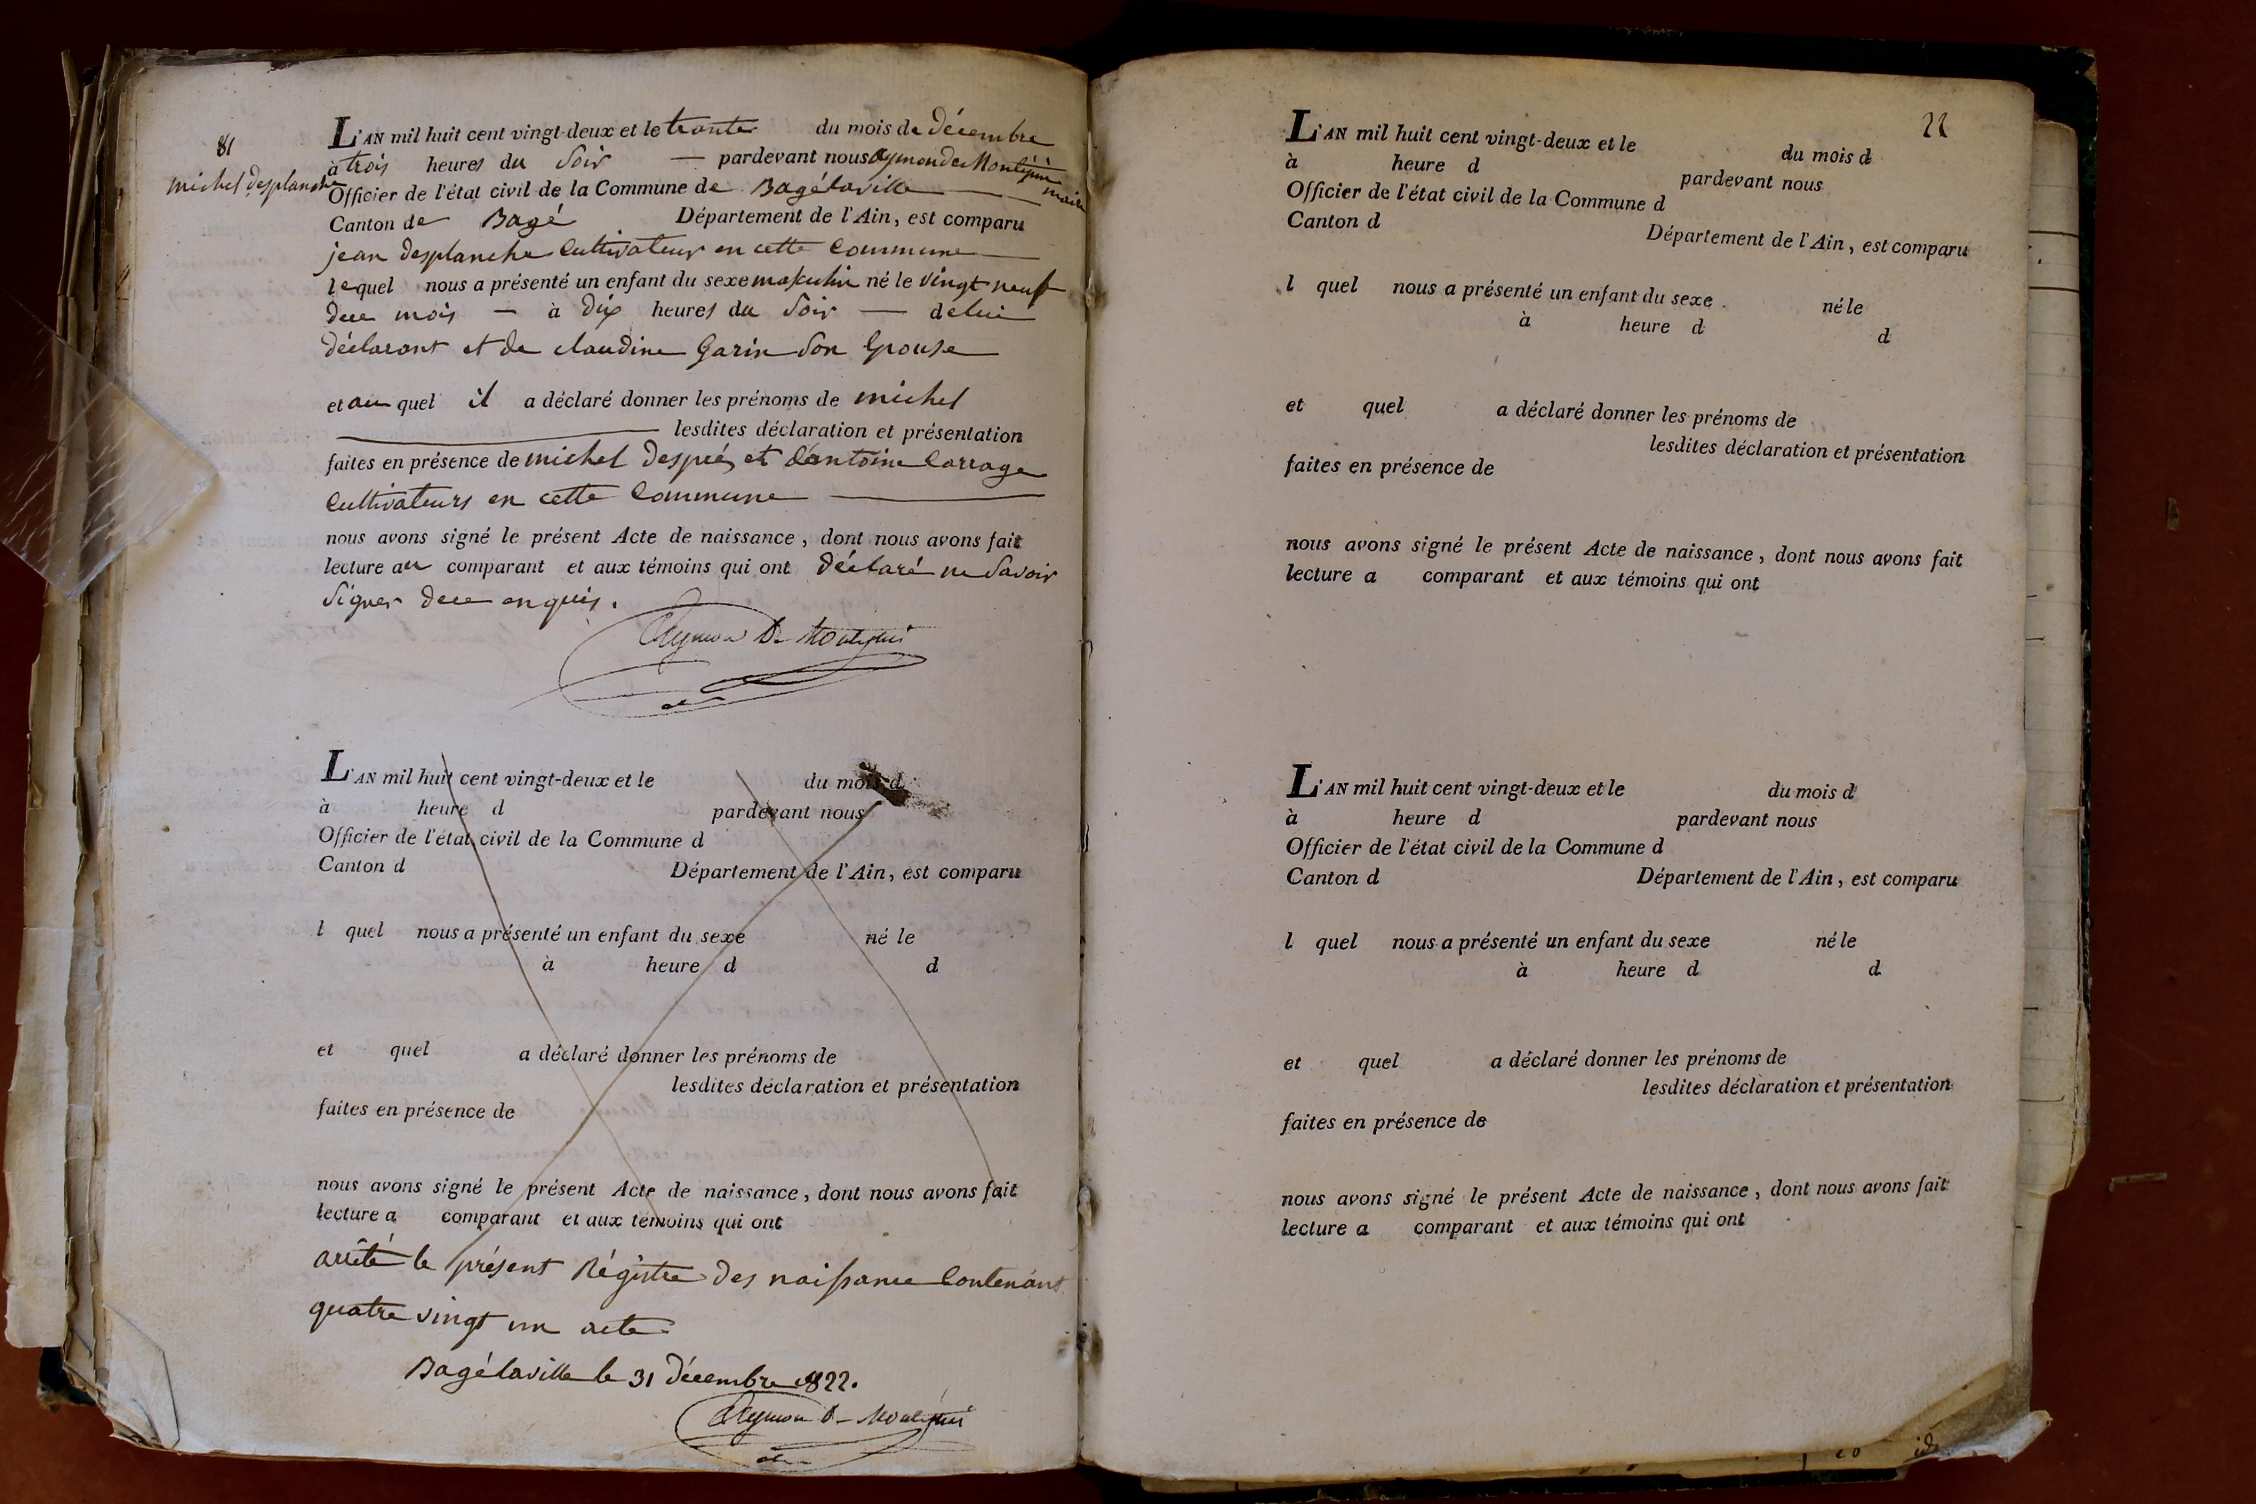 81
michel desplanche
L'AN mil huit cent vingt-deux et le trente du mois de décembre
à trois heures du soir — pardevant nous aymon de Montépin maire
Officier de l'état civil de la Commune de Bagélaville
Canton de Bagé Département de l'Ain, est comparu
jean desplanche cultivateur en cette commune
lequel nous a présenté un enfant du sexe masculin né le vingt neuf
de ce mois — à dix heures du soir — de lui
déclarant et de claudine Garin son épouse
et au quel il a déclaré donner les prénoms de michel
lesdites déclaration et présentation
faites en présence de michel després et d'antoine Carrage
cultivateurs en cette commune
nous avons signé le présent Acte de naissance, dont nous avons fait
lecture au comparant et aux témoins qui ont déclaré ne savoir
signer de ce enquis.
Aymon De Montépin
L'AN mil huit cent vingt-deux et le du mois d
à heure d pardevant nous
Officier de l'état civil de la Commune d
Canton d Département de l'Ain, est comparu
l quel nous a présenté un enfant du sexe né le
à heure d d
et quel a déclaré donner les prénoms de
lesdites déclaration et présentation
faites en présence de
nous avons signé le présent Acte de naissance, dont nous avons fait
lecture a comparant et aux témoins qui ont
arrêté le présent Régistre des naissance contenant
quatre vingt un acte
Bagélaville le 31 décembre 1822.
Aymon De Montépin
22
L'AN mil huit cent vingt-deux et le du mois d
à heure d pardevant nous
Officier de l'état civil de la Commune d
Canton d Département de l'Ain, est comparu
l quel nous a présenté un enfant du sexe né le
à heure d d
et quel a déclaré donner les prénoms de
lesdites déclaration et présentation
faites en présence de
nous avons signé le présent Acte de naissance, dont nous avons fait
lecture a comparant et aux témoins qui ont
L'AN mil huit cent vingt-deux et le du mois d
à heure d pardevant nous
Officier de l'état civil de la Commune d
Canton d Département de l'Ain, est comparu
l quel nous a présenté un enfant du sexe né le
à heure d d
et quel a déclaré donner les prénoms de
lesdites déclaration et présentation
faites en présence de
nous avons signé le présent Acte de naissance, dont nous avons fait
lecture a comparant et aux témoins qui ont